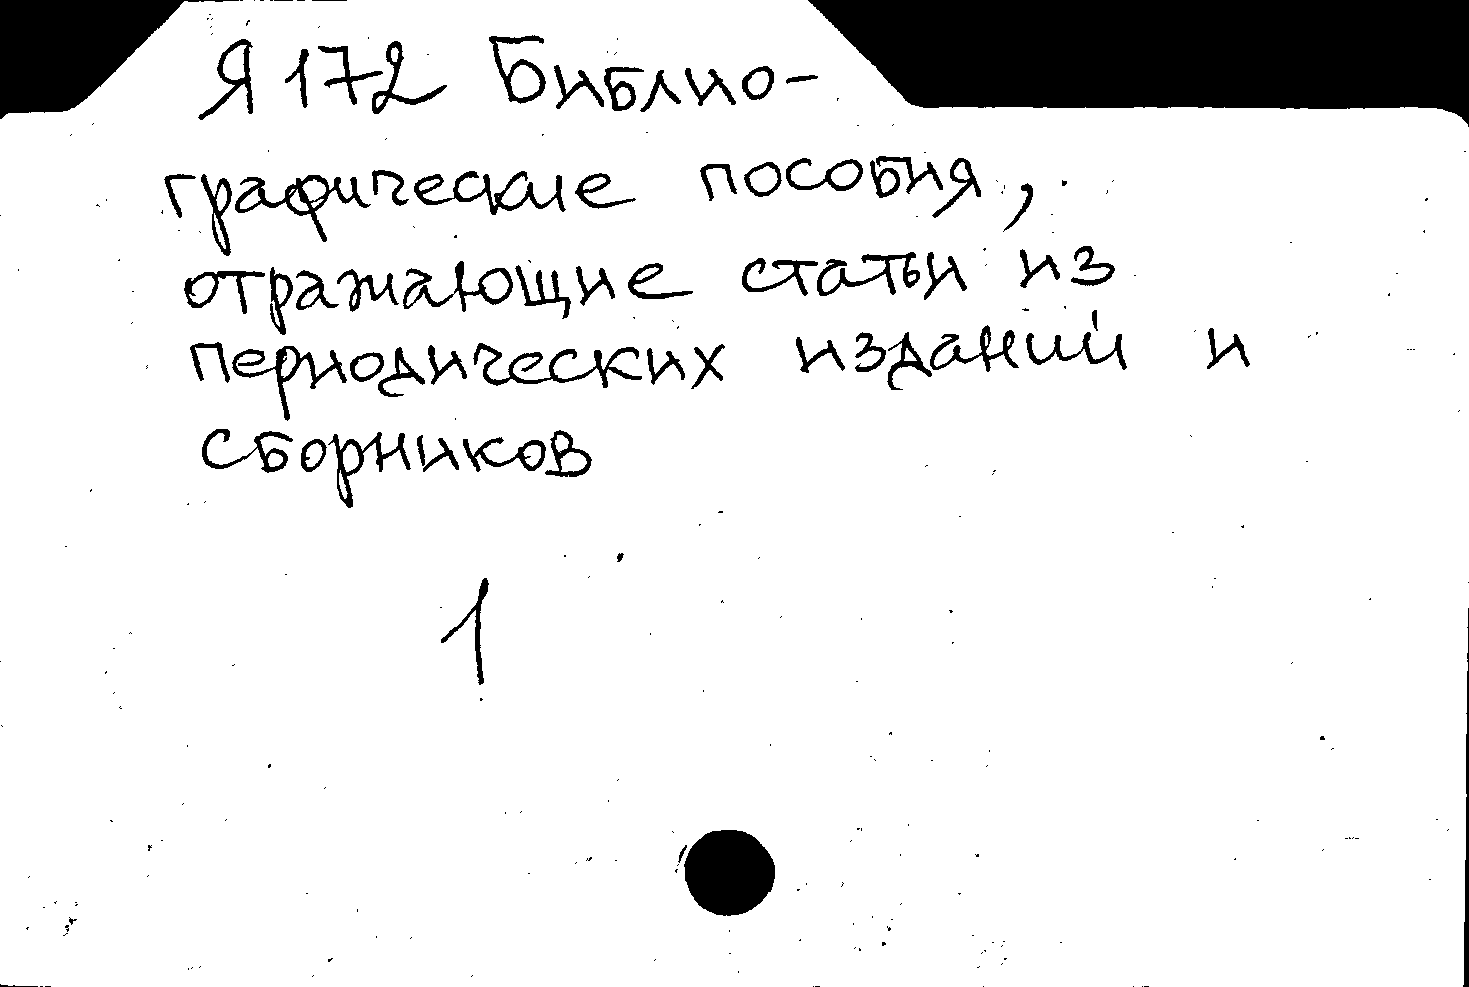 Я 172 Библио-
графические пособия,
отражающие статьи из
периодических изданий и
сборников
1